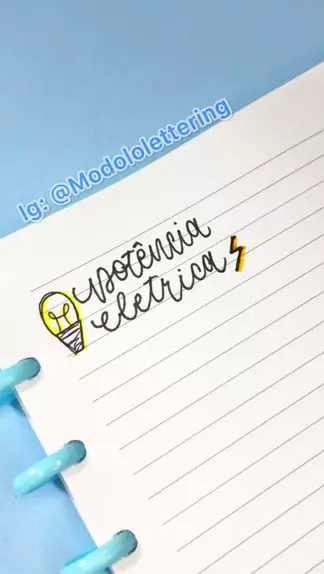 Ig: @Modololettering
potência
eletrica